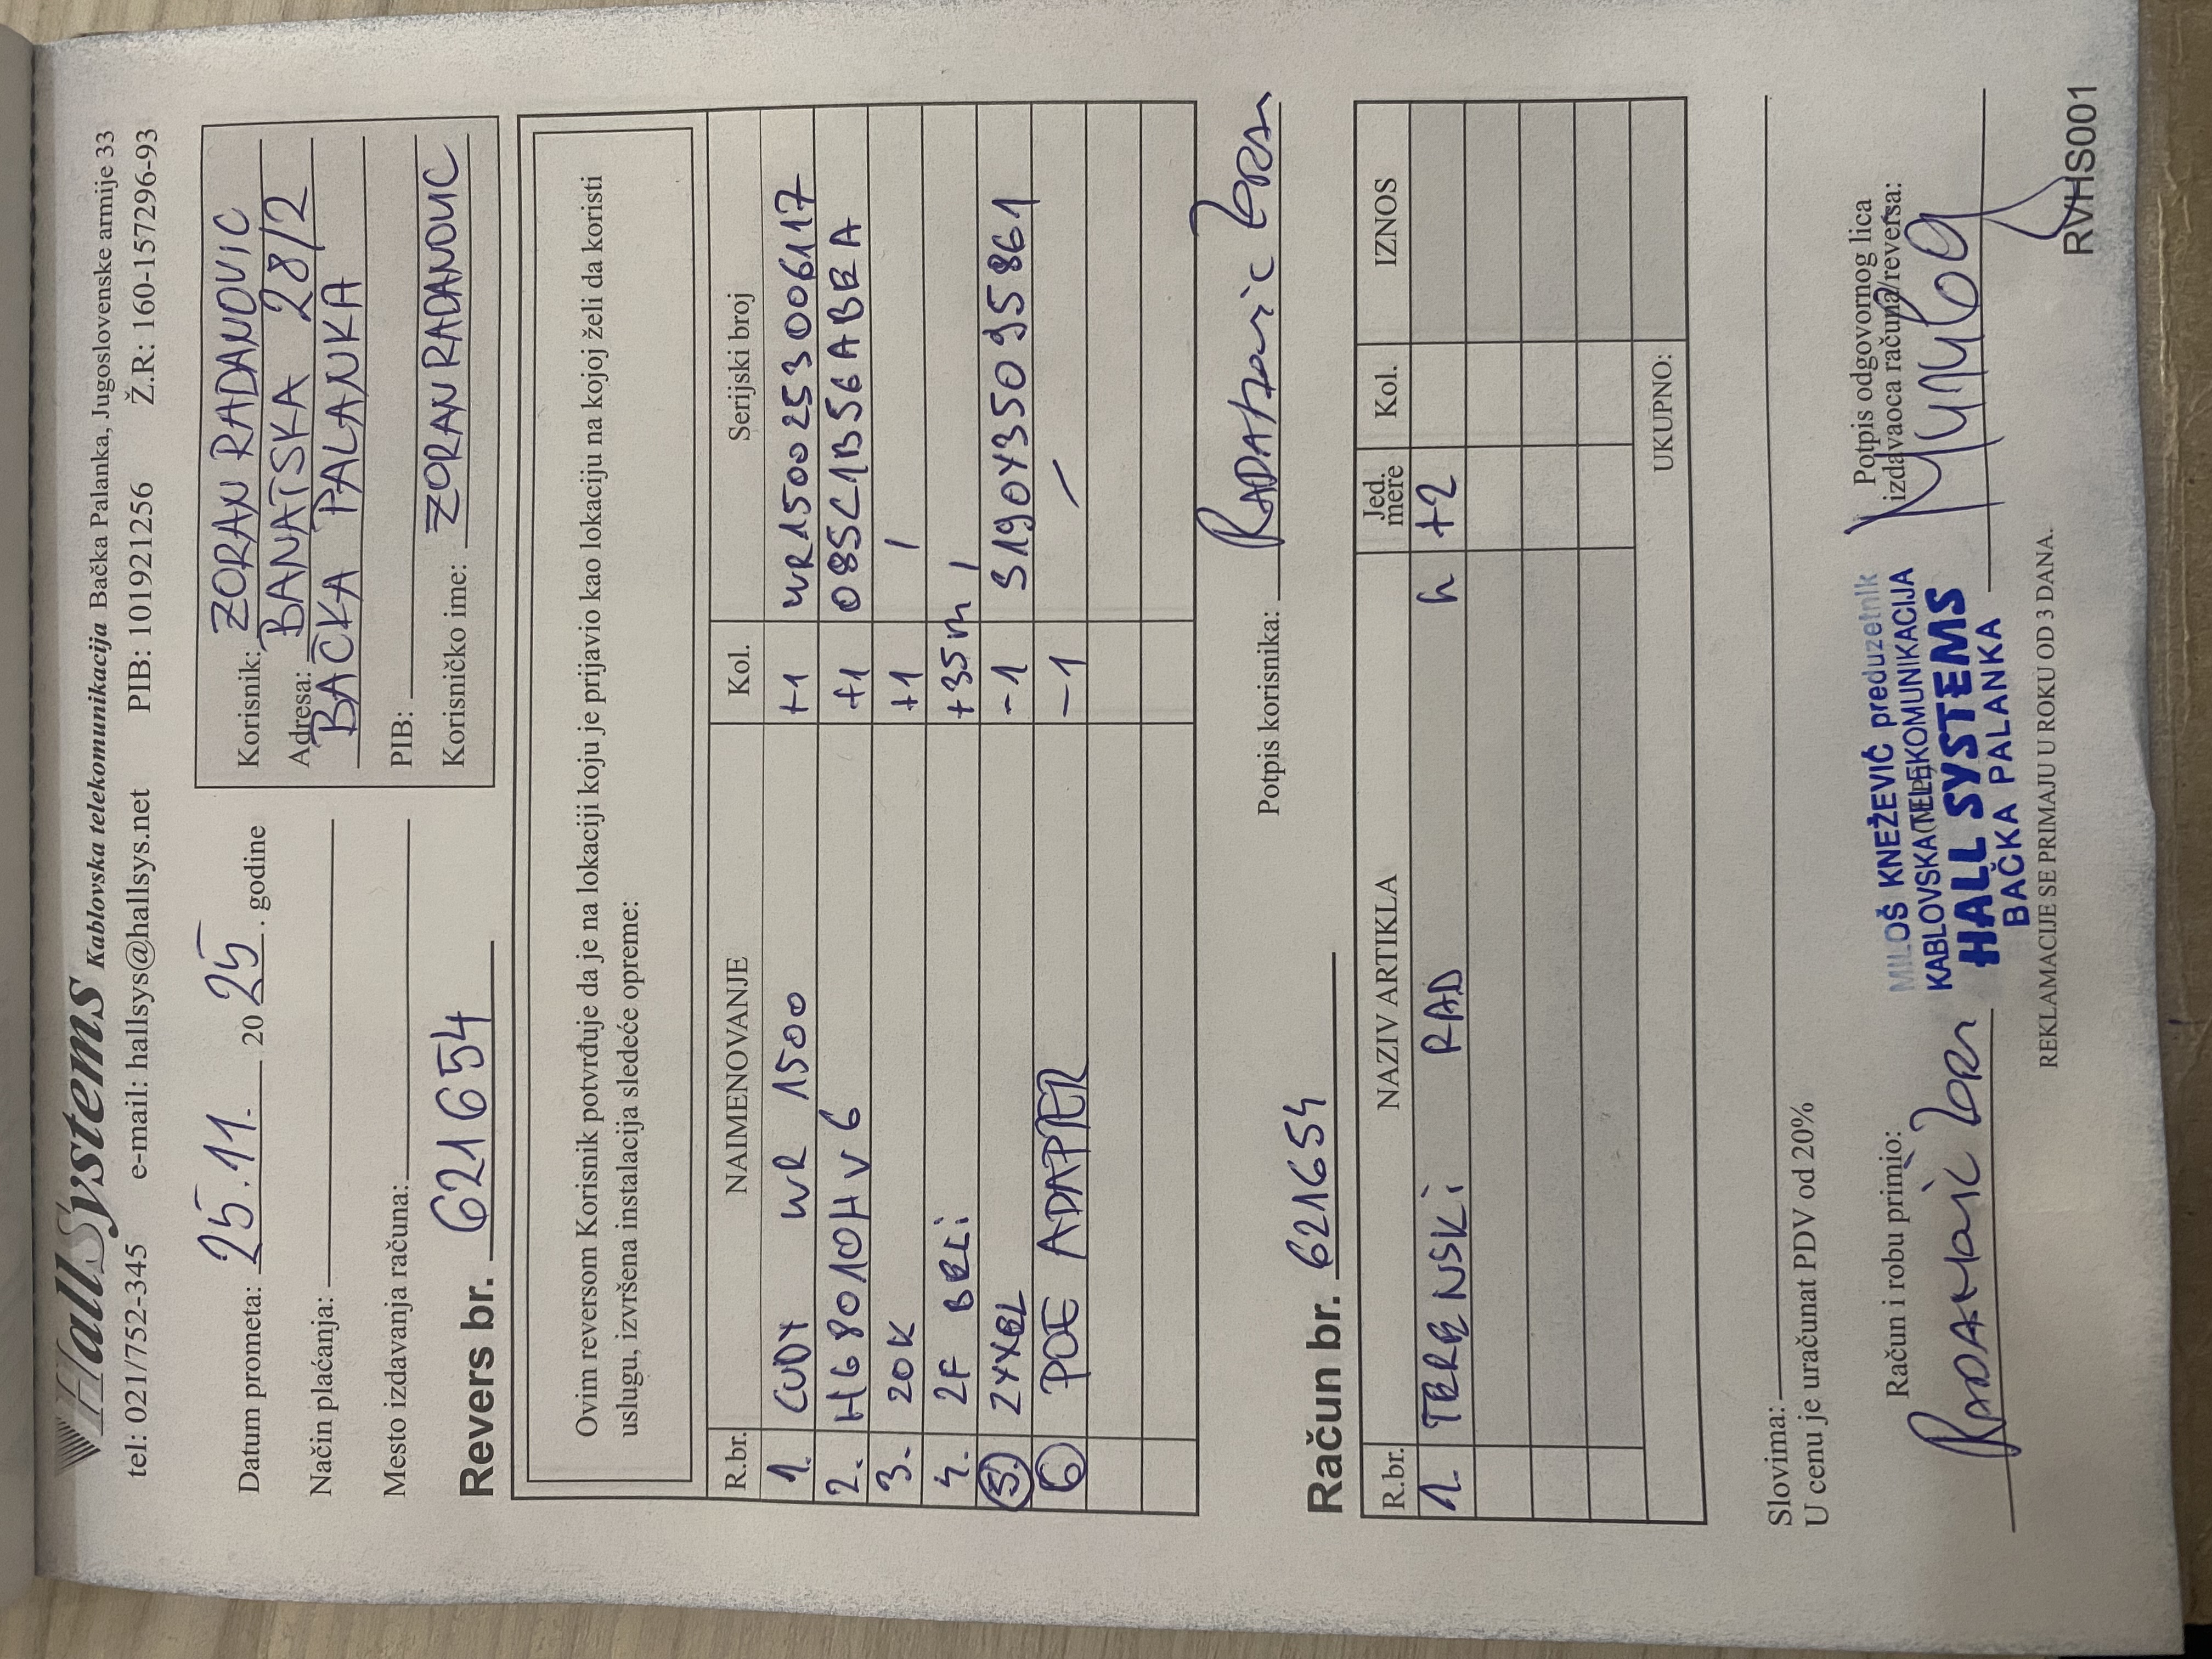 HallSystems Kablovska telekomunikacija Bačka Palanka, Jugoslovenske armije 33
tel: 021/752-345 e-mail: hallsys@hallsys.net PIB: 101921256 Ž.R: 160-157296-93
Datum prometa: 25.11. 2025. godine
Način plaćanja:
Mesto izdavanja računa:
Korisnik: ZORAN RADANOVIC
Adresa: BANATSKA 28/2
BAČKA PALANKA
PIB:
Korisničko ime: ZORAN RADANOVIC
Revers br. 621654
Ovim reversom Korisnik potvrđuje da je na lokaciji koju je prijavio kao lokaciju na kojoj želi da koristi
uslugu, izvršena instalacija sledeće opreme:
R.br. NAIMENOVANJE Kol. Serijski broj
1. CUDY WR 1500 +1 WR1500253006117
2. HG8010HV6 +1 085C1B56ABEA
3. 20K +1 /
4. 2F BELI +35m /
5. ZYXEL -1 S190Y35095861
6 POE ADAPTER -1 /
Potpis korisnika: RADANOVIC Zoran
Račun br. 621654
R.br. NAZIV ARTIKLA Jed. mere Kol. IZNOS
1. TERENSKI RAD h +2
UKUPNO:
Slovima:
U cenu je uračunat PDV od 20%
Račun i robu primio:
RADANOVIC Zoran
MILOŠ KNEŽEVIĆ preduzetnik
KABLOVSKA TELEKOMUNIKACIJA
HALL SYSTEMS
BAČKA PALANKA
Potpis odgovornog lica
izdavaoca računa/reversa:
REKLAMACIJE SE PRIMAJU U ROKU OD 3 DANA.
RVHS001